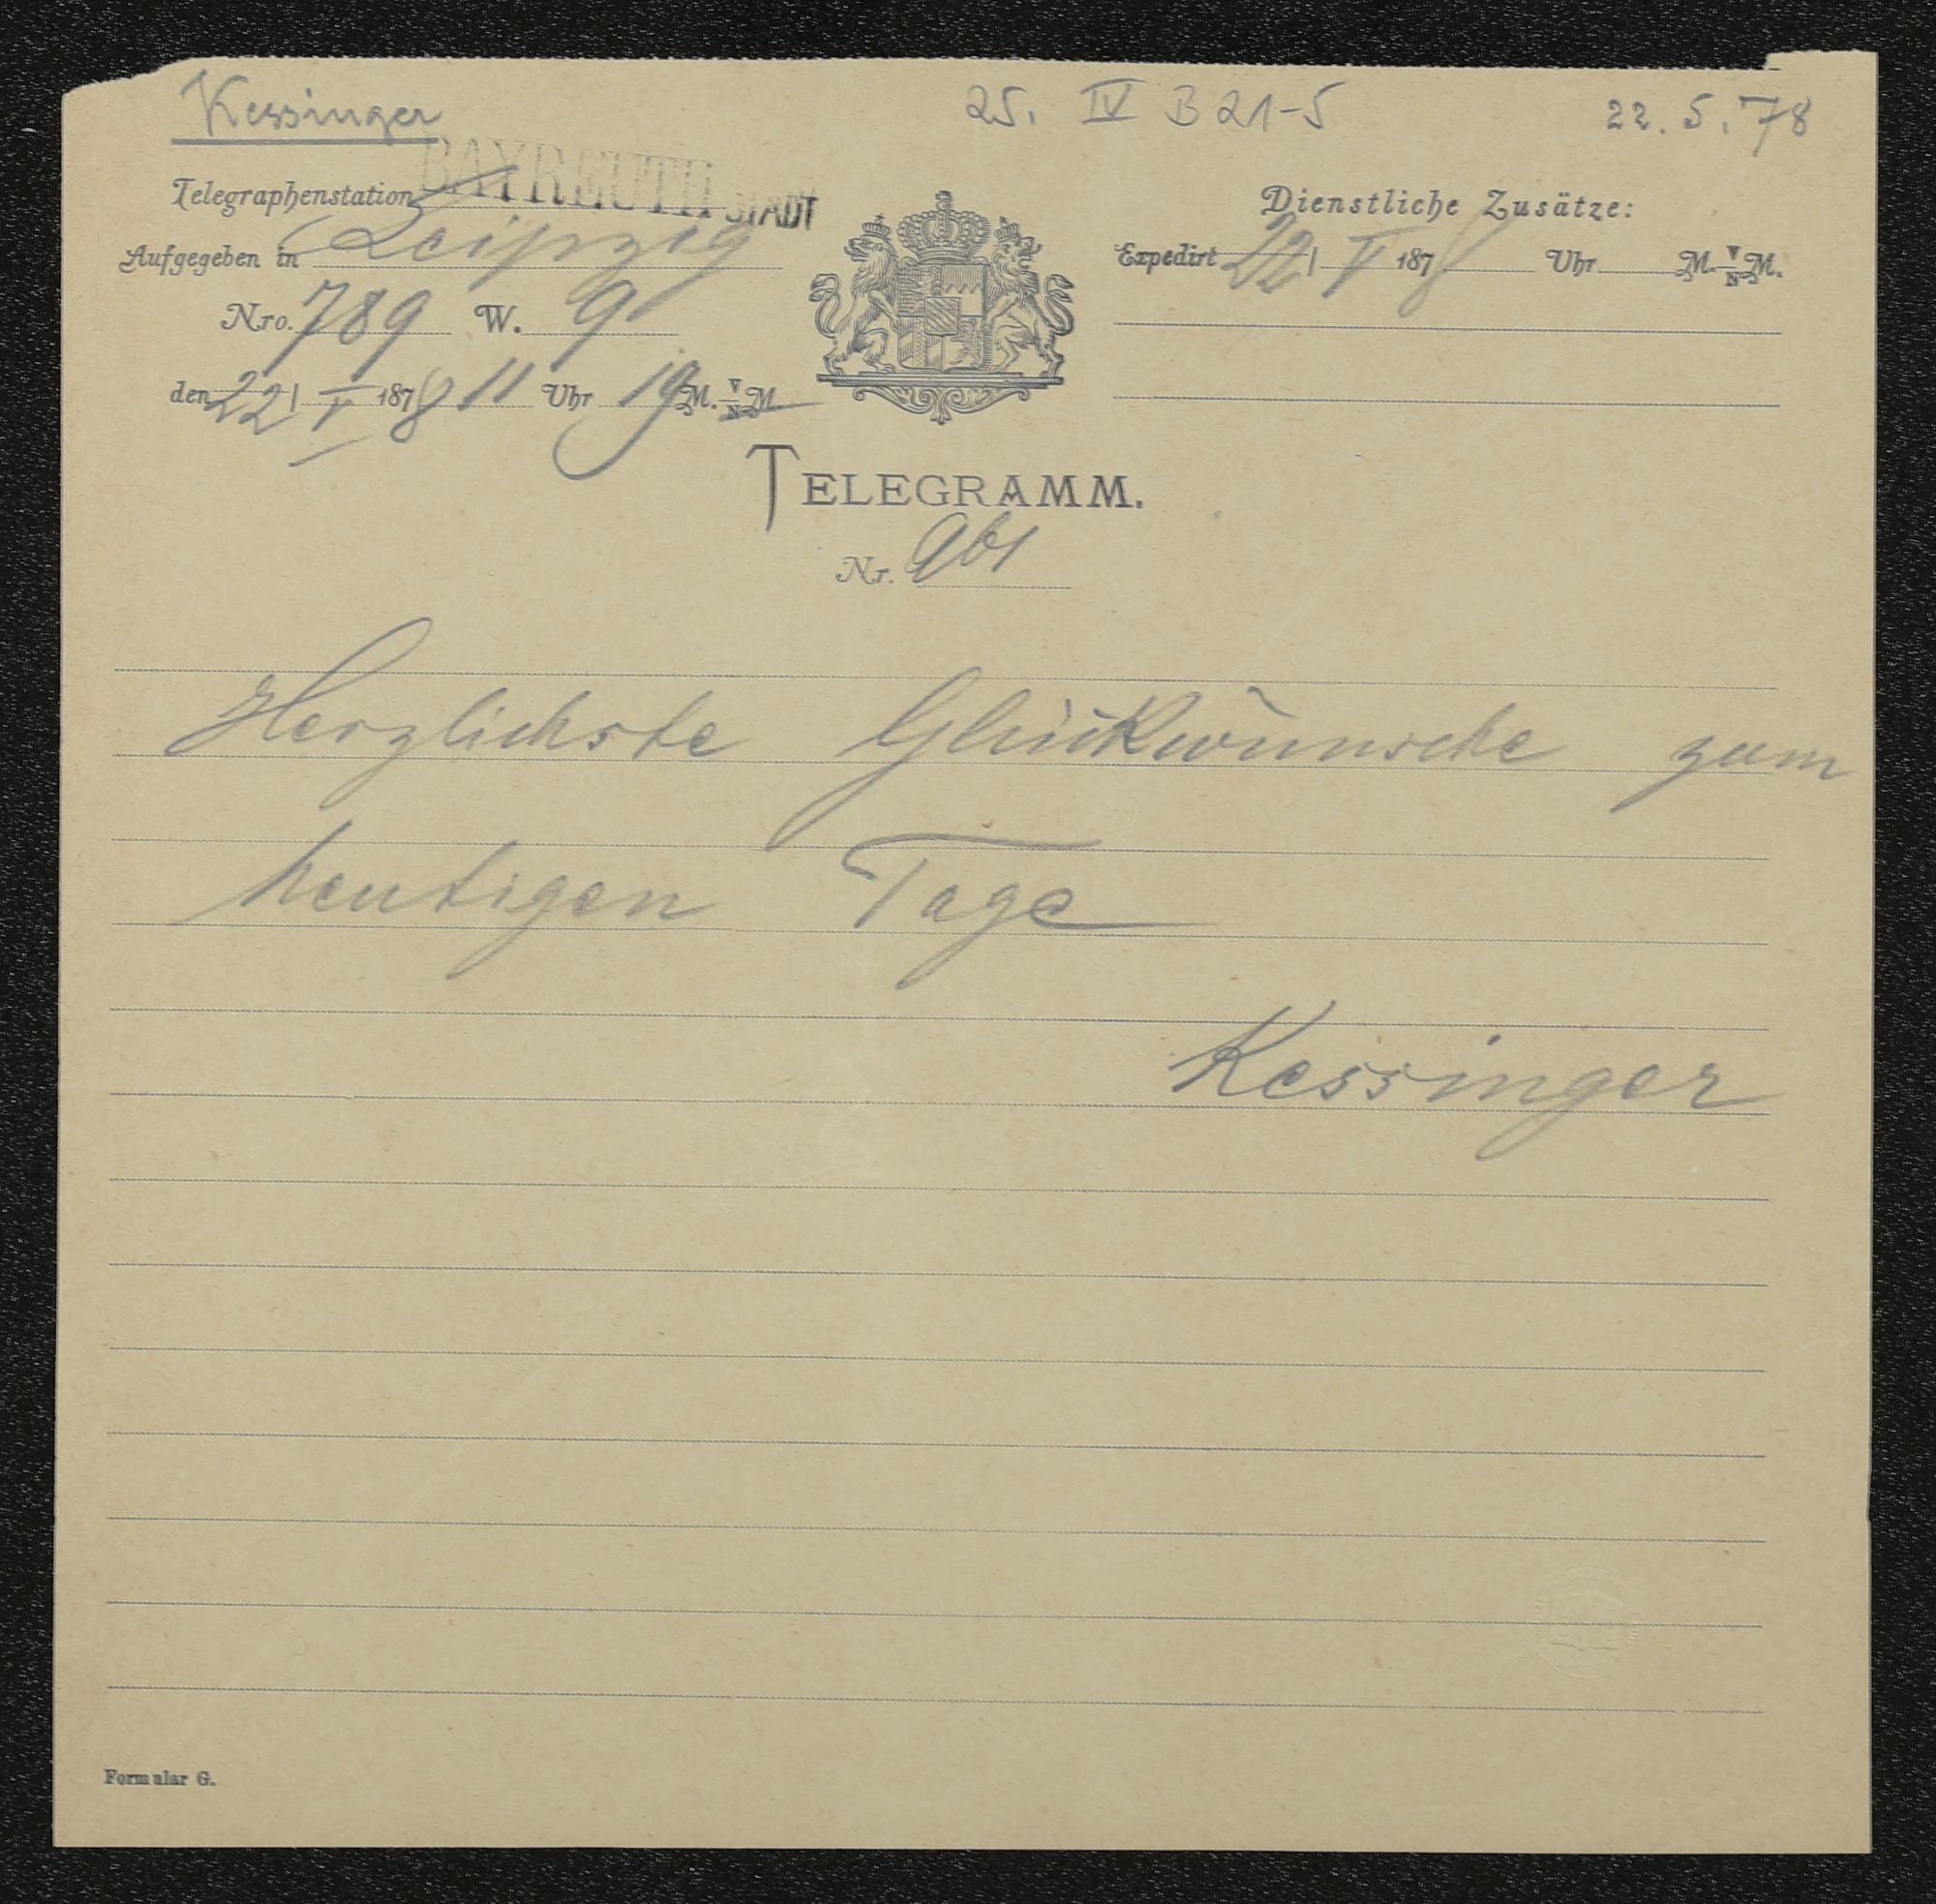 Kessinger
25. IV B 21-5
22.5.78
Telegraphenstation BAYREUTH STADT
Aufgegeben in Leipzig
Nro. 789 W. 9
den 22/V 1878 11 Uhr 19 M. V/N M.
Dienstliche Zusätze:
Expedirt 22/V 1878 Uhr M. V/N M.
TELEGRAMM.
Nr. 961
Herzlichste Glückwünsche zum
heutigen Tage
Kessinger
Formular G.